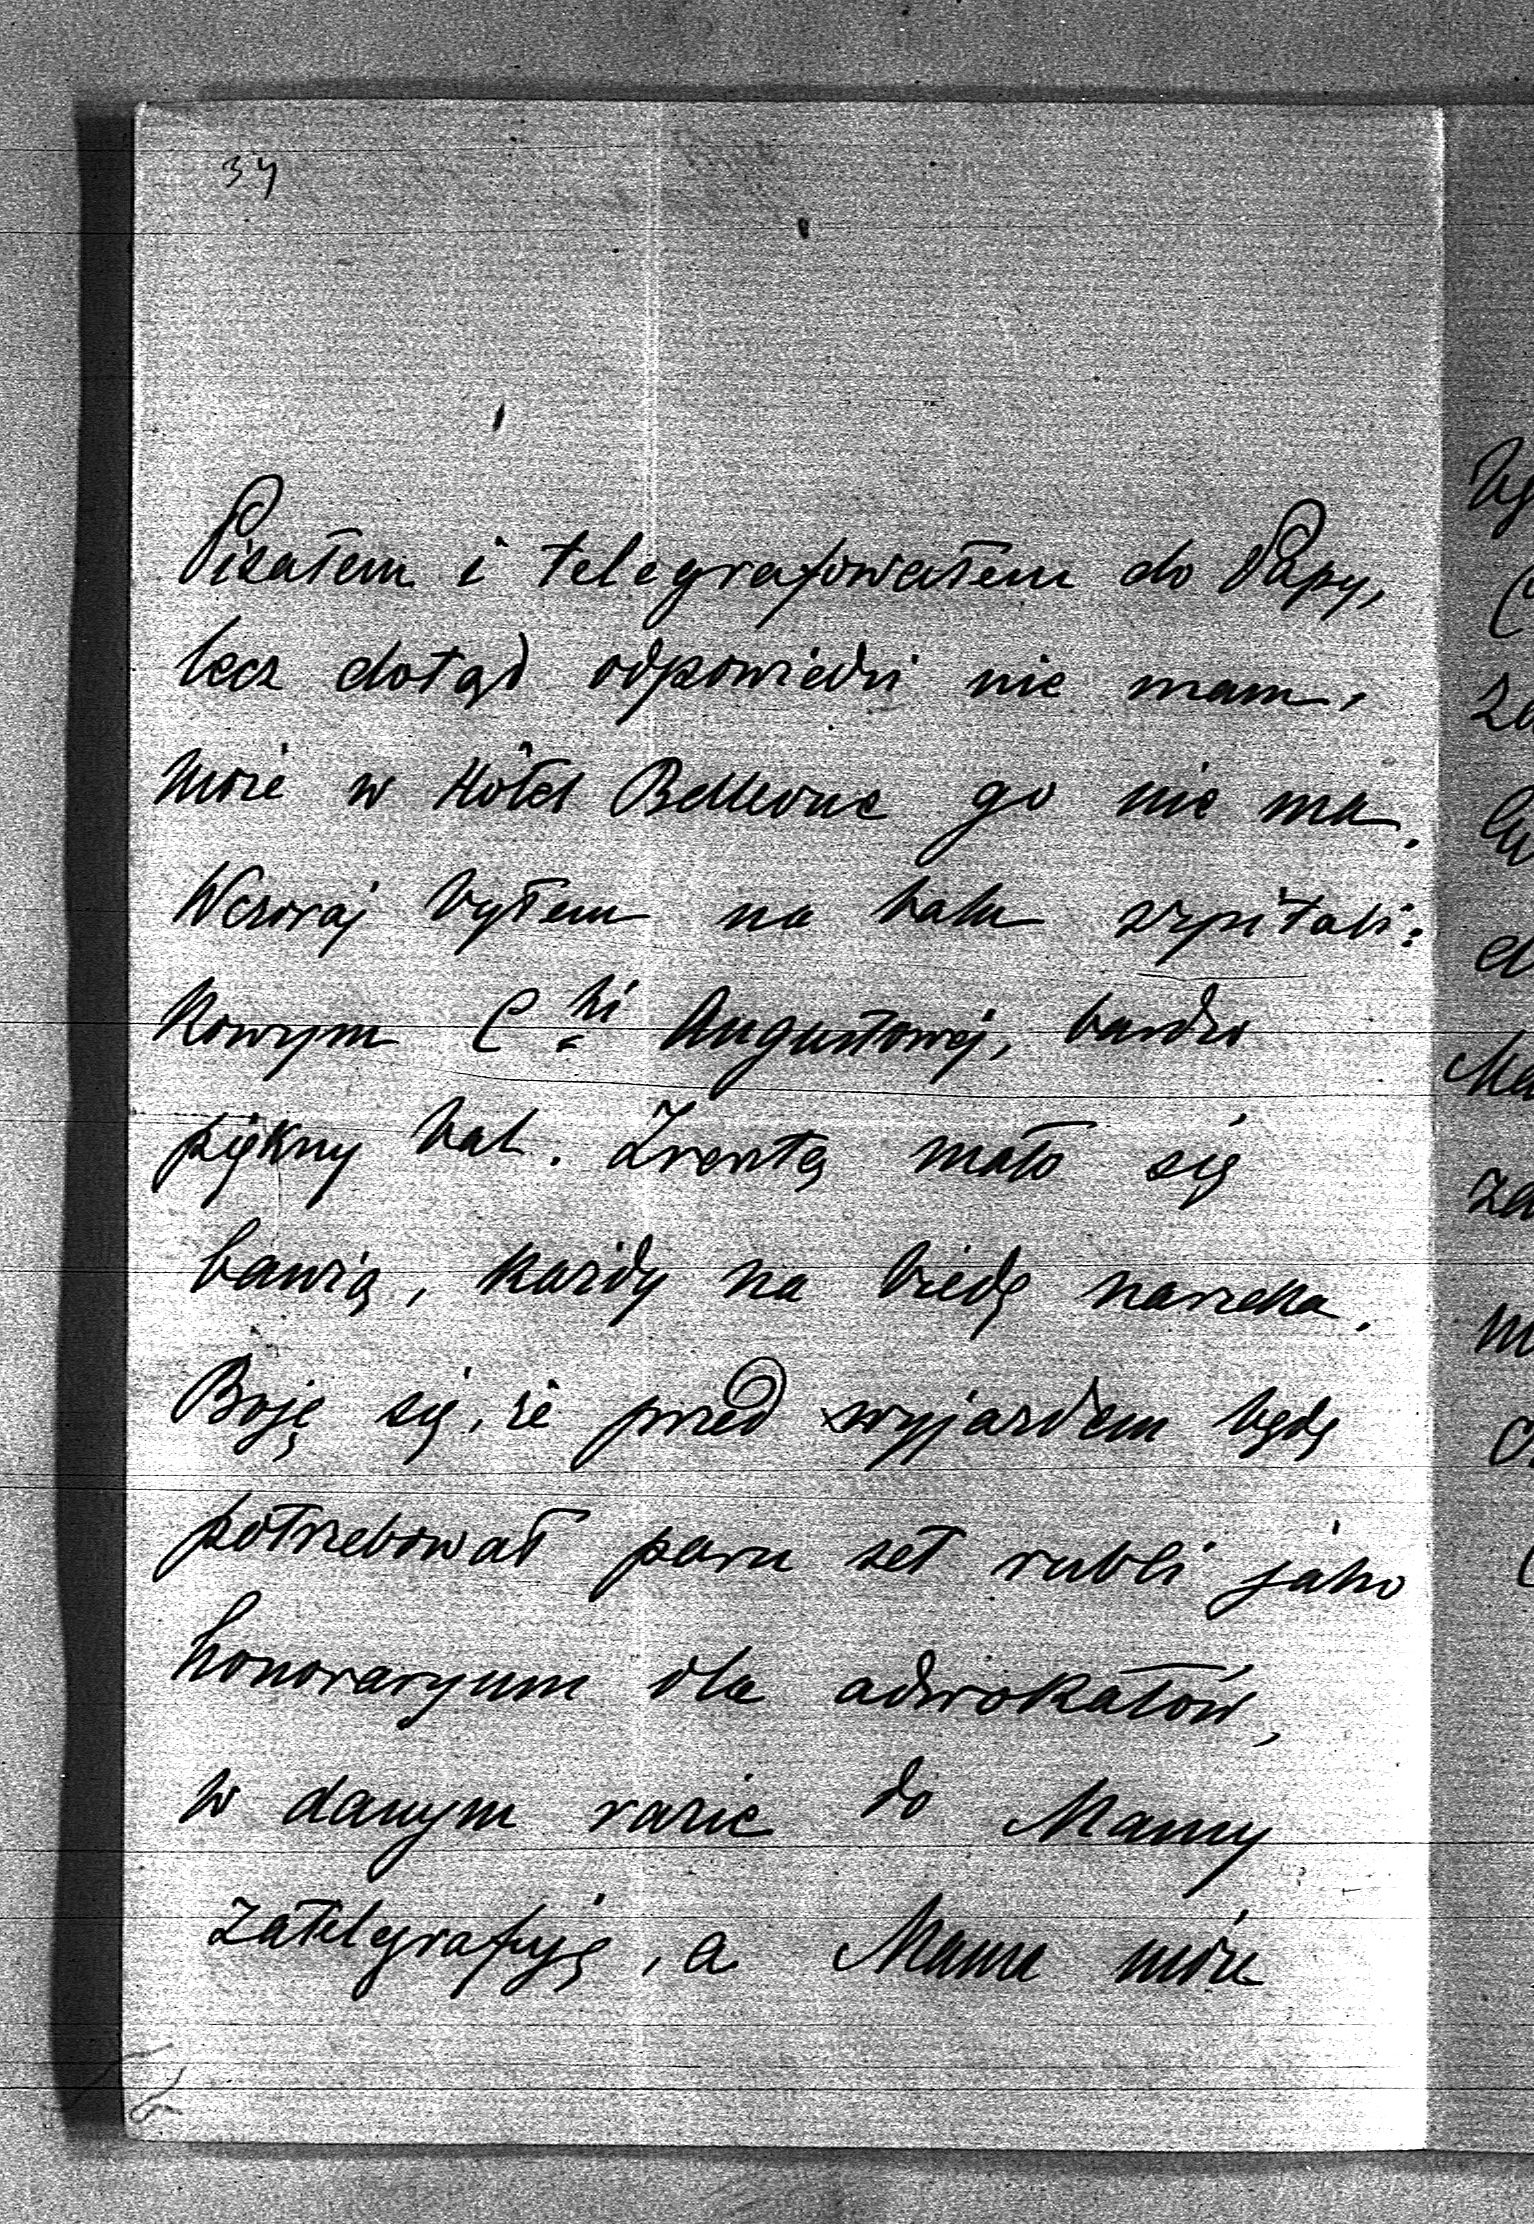 34
Pisałem i telegrafowałem do Papy,
lecz dotąd odpowiedzi nie mam,
może w Hôtel Bellevue go nie ma.
Wczoraj byłem na balu szpitali:
kowym C<sup>ki</sup> Augustowej, bardzo
piękny bal. Zresztą mało się
bawią, każdy na biedę narzeka.
Boję się, że przed wyjazdem będę
potrzebował paru set rubli jako
honoraryum dla adwokatów,
w danym razie do Mamy
zatelegrafuję, a Mama może